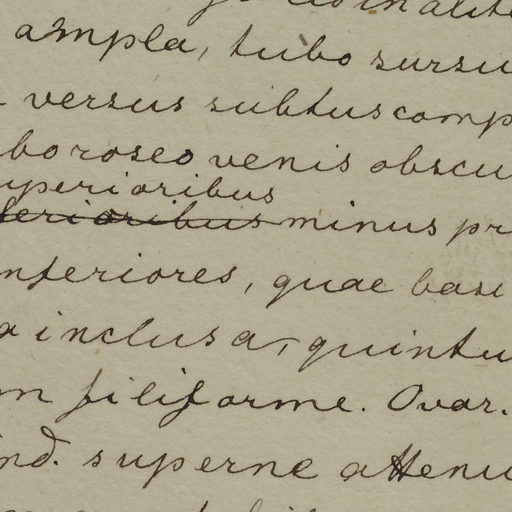 ampla, tubo sursu
versus subtus comp
bo roseo venis obscu
uperioribus
ferioribus minus pr
nferiores, quae basi
a inclusa, quintu
m filiforme. Ovar.
ind. superne attenu